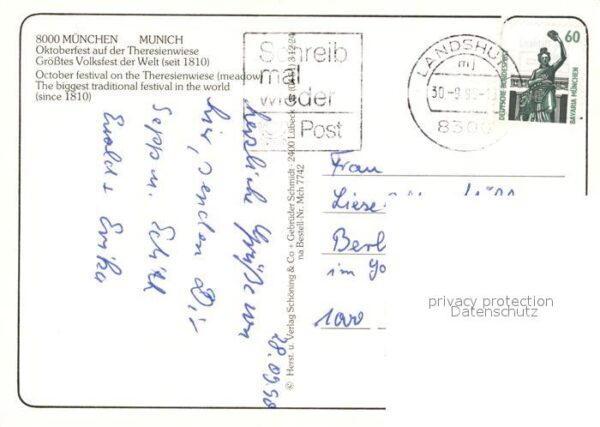 8000 MÜNCHEN MUNICH
Oktoberfest auf der Theresienwiese
Größtes Volksfest der Welt (seit 1810)
October festival on the Theresienwiese (meadow)
The biggest traditional festival in the world
(since 1810)
Schreib
mal
wieder
Post
LANDSHUT
30-9.90
8300
60
DEUTSCHE BUNDESPOST
BAVARIA MÜNCHEN
28.09.90
Herzliche Grüße von
hier, senden Dir
Sepp u. Edith
Ewald + Erika
© Herst. u. Verlag Schöning & Co + Gebrüder Schmidt · 2400 Lübeck
na Bestell-Nr. Mch 7742
Frau
Liese
Berl
im
1000
privacy protection
Datenschutz